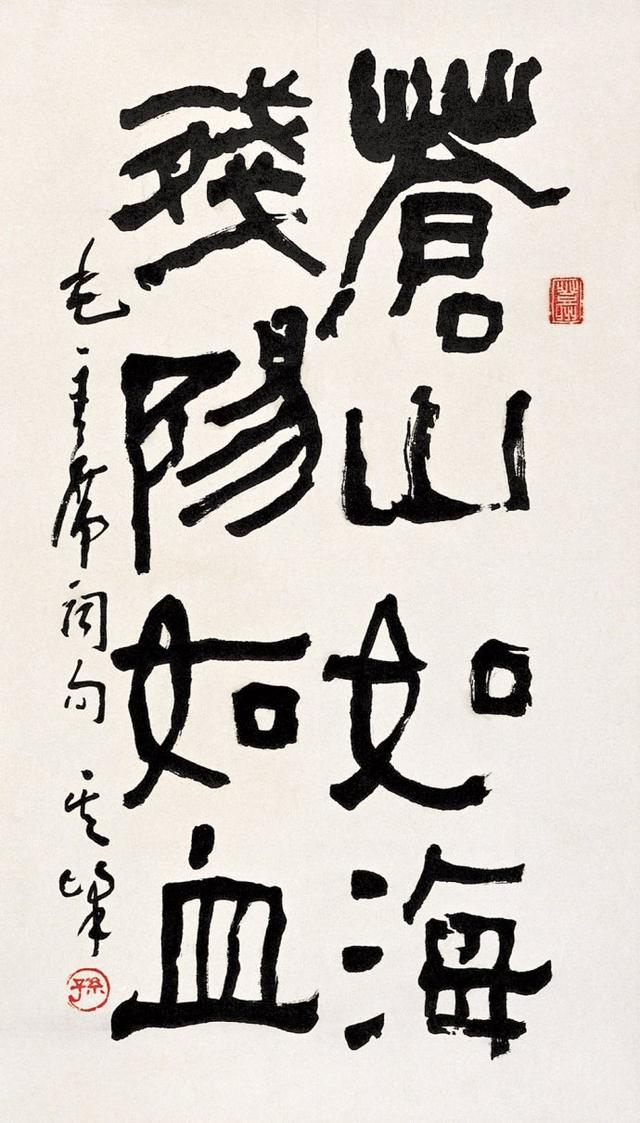 蒼山如海
殘陽如血
毛主席詞句 其峰
孫